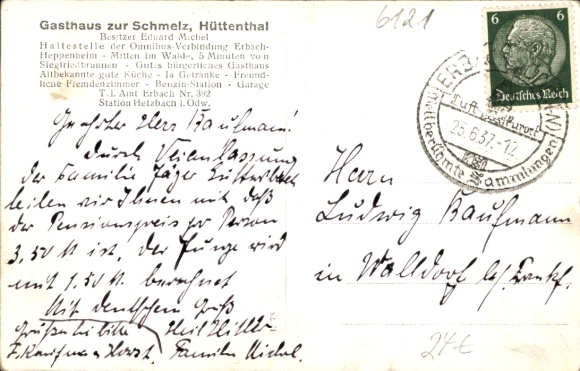 Gasthaus zur Schmelz, Hüttenthal
Besitzer Eduard Michel
Haltestelle der Omnibus-Verbindung Erbach-
Heppenheim - Mitten im Walde, 5 Minuten von
Siegfriedbrunnen - Gutes bürgerliches Gasthaus
Altbekannte gute Küche - Ia Getränke - Freund-
liche Fremdenzimmer - Benzin-Station - Garage
Tel. Amt Erbach Nr. 392
Station Hetzbach i. Odw.
6121
6 6
Deutsches Reich
ERBACH
Luftkurort
25.6.37.-17
weltberühmte Sammlungen
Geehrter Herr Kaufmann!
Durch Veranlassung
der Familie Jäger
teilen wir Ihnen mit daß
der Pensionspreis pr Person
3.50 M ist. Der Junge wird
mit 1.50 M berechnet
Mit deutschem Gruß
Heil Hitler
Familie Michel.
Herrn
Ludwig Kaufmann
in Walldorf b/ Frankf.
24€